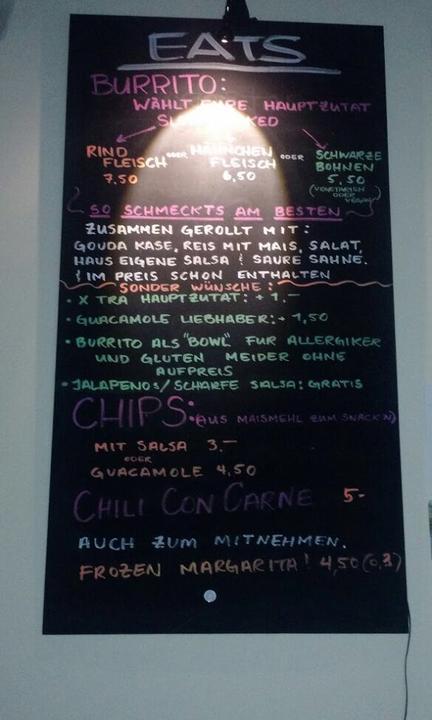 EATS
BURRITO:
WÄHLT EURE HAUPTZUTAT
SLOW COOKED
RIND ODER HÄHNCHEN ODER SCHWARZE
FLEISCH FLEISCH BOHNEN
7,50 6,50 5,50
(VEGETARISCH
ODER
VEGAN)
SO SCHMECKTS AM BESTEN
ZUSAMMEN GEROLLT MIT:
GOUDA KASE, REIS MIT MAIS, SALAT,
HAUS EIGENE SALSA & SAURE SAHNE.
& IM PREIS SCHON ENTHALTEN
SONDER WÜNSCHE:
• X TRA HAUPTZUTAT: + 1.-
• GUACAMOLE LIEBHABER: + 1,50
• BURRITO ALS "BOWL" FUR ALLERGIKER
UND GLUTEN MEIDER OHNE
AUFPREIS
• JALAPENOS/SCHARFE SALSA: GRATIS
CHIPS: (AUS MAISMEHL ZUM SNACK'N)
MIT SALSA 3.-
ODER
GUACAMOLE 4,50
CHILI CON CARNE 5-
AUCH ZUM MITNEHMEN.
FROZEN MARGARITA! 4,50 (0,3)